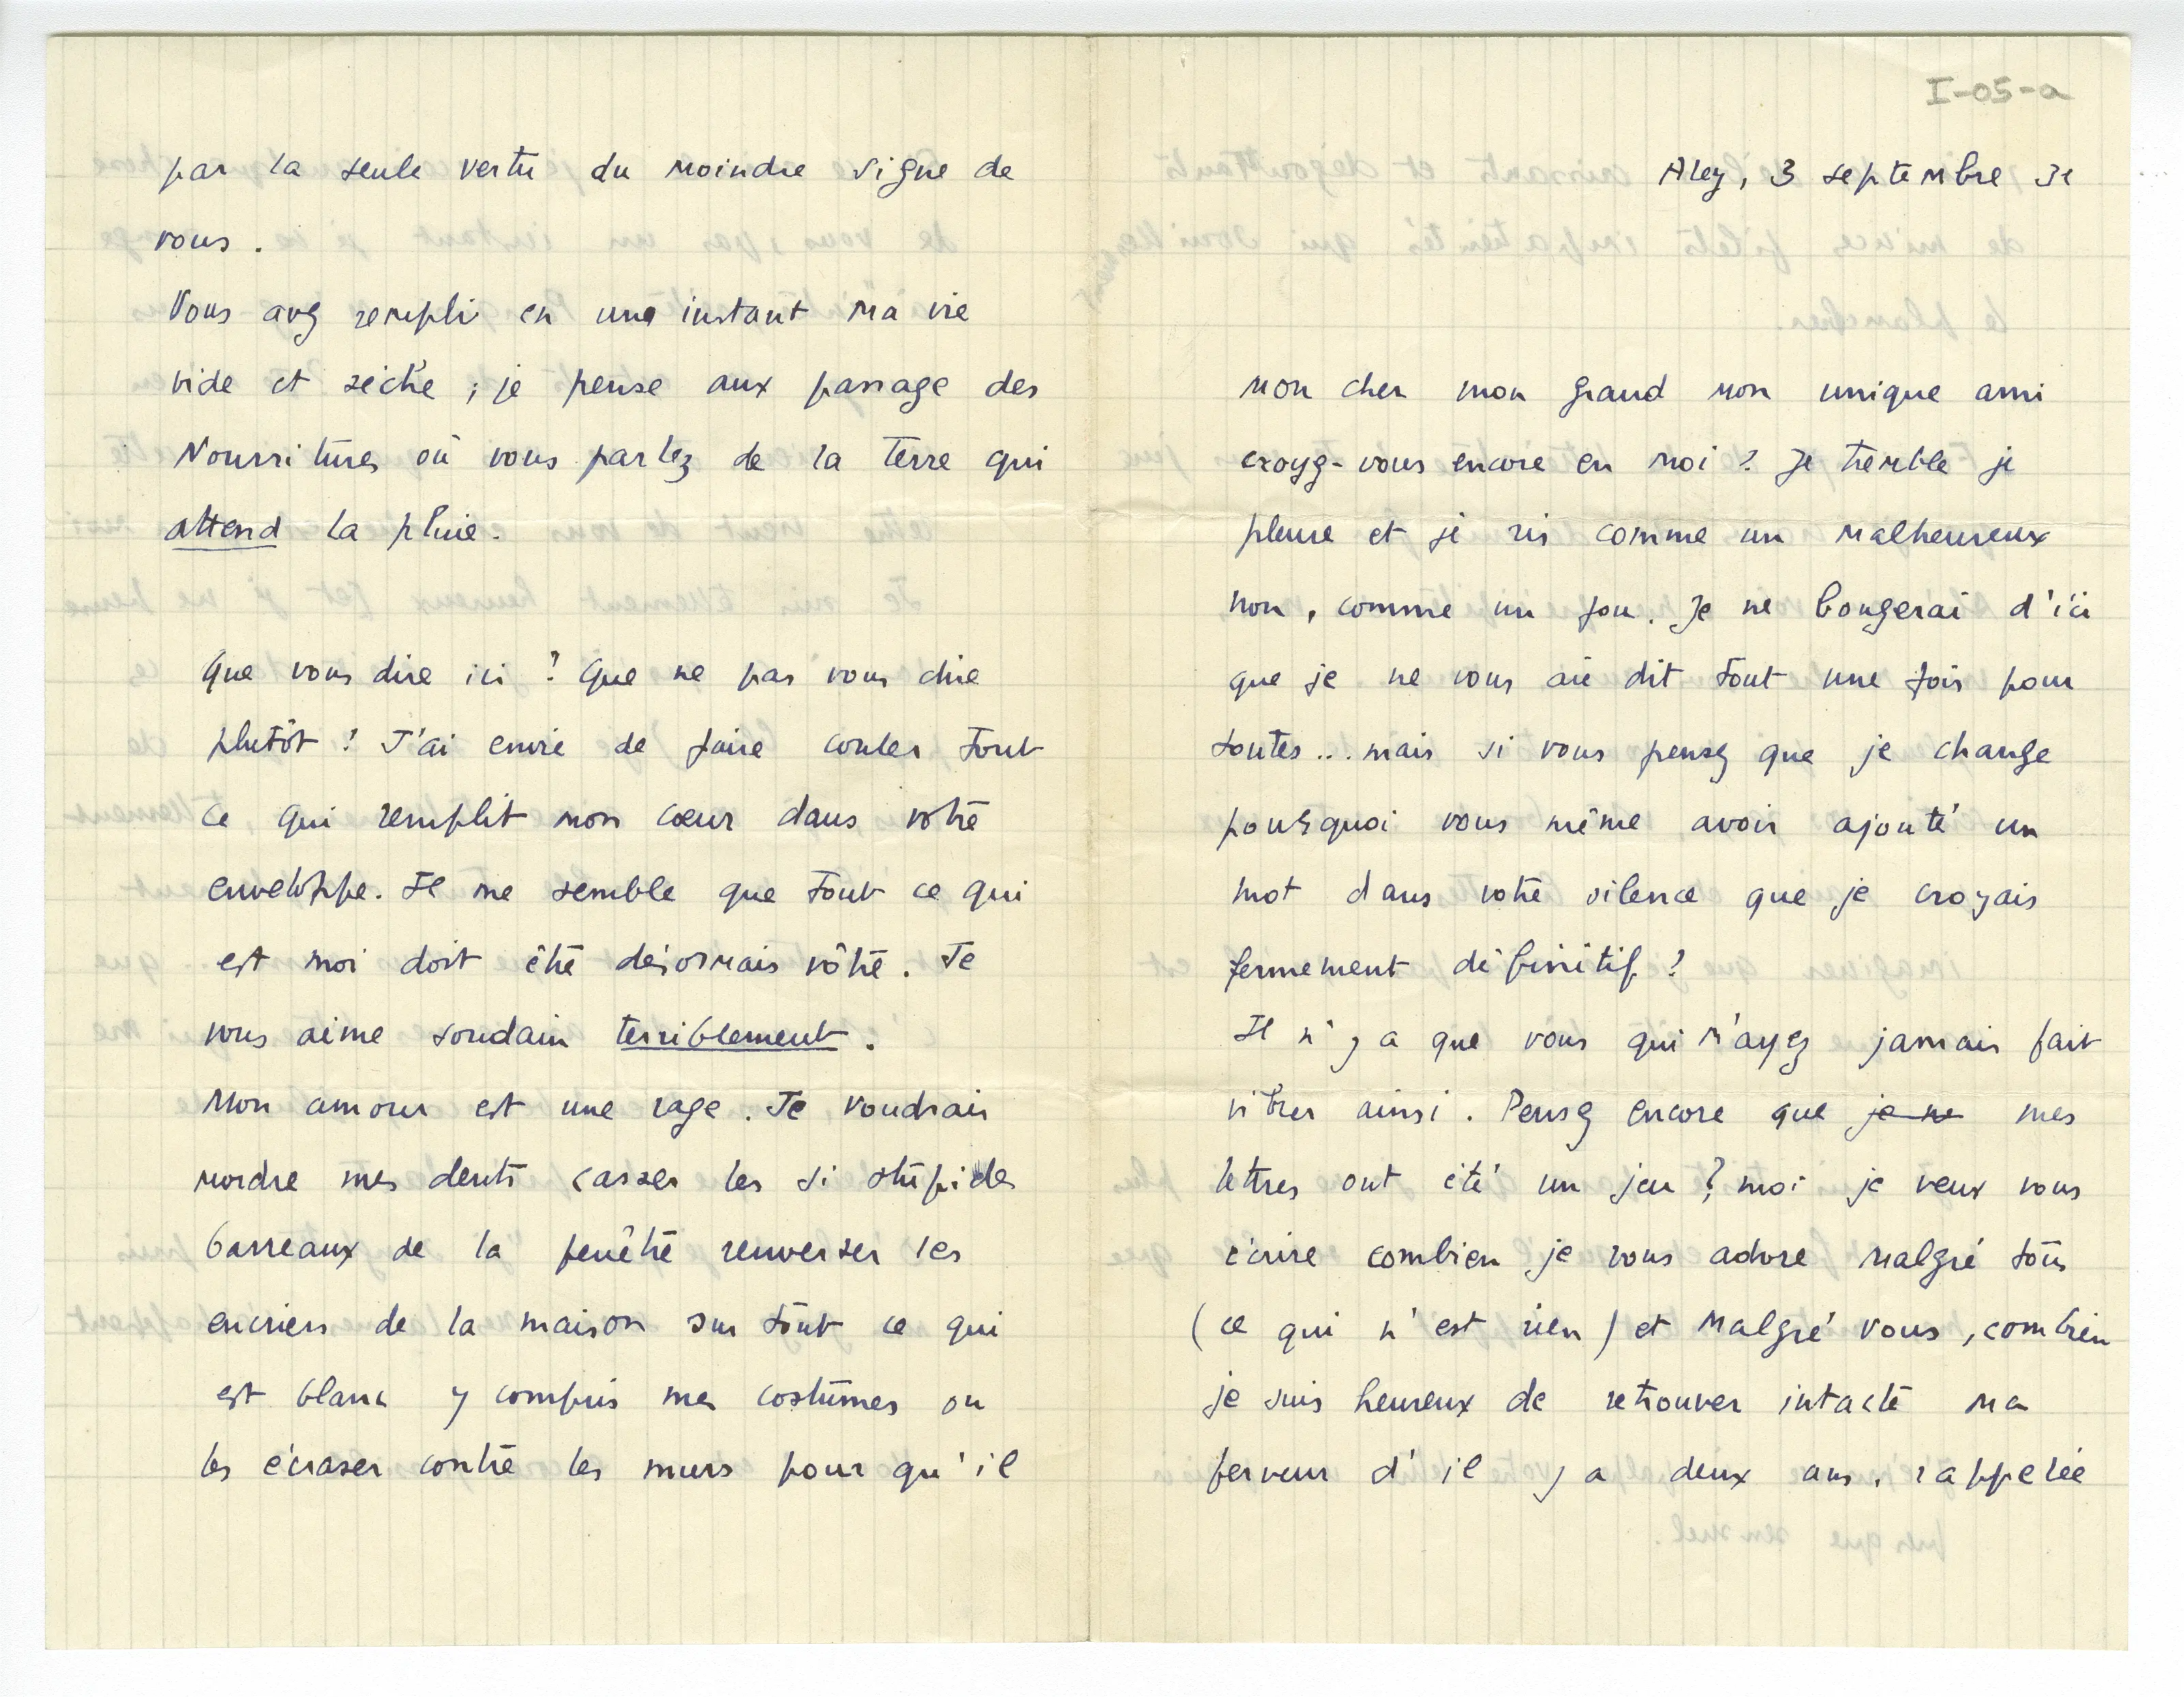 I-05-a
Aley, 3 septembre
Mon cher mon grand mon unique ami
croyez-vous encore en moi ? Je tremble je
pleure et je ris comme un malheureux
non, comme un fou. Je ne bougerai d'ici
que je ne vous aie dit tout une fois pour
toutes... mais si vous pensez que je change
pourquoi vous même avoir ajouté un
mot dans votre silence que je croyais
fermement définitif ?
Il n'y a que vous qui m'ayez jamais fait
vibrer ainsi. Pensez encore que je ne mes
lettres ont été un jeu ? moi je veux vous
écrire combien je vous adore malgré tous
(ce qui n'est rien) et malgré vous, combien
je suis heureux de retrouver intacte ma
ferveur d'il y a deux ans, rappelée
par la seule vertu du moindre signe de
vous.
Vous avez rempli en une instant ma vie
vide et sèche ; je pense aux passage des
Nourritures où vous parlez de la terre qui
attend la pluie.
Que vous dire ici ? Que ne pas vous dire
plutôt ? J'ai envie de faire couler tout
ce qui remplit mon cœur dans votre
enveloppe. Il me semble que tout ce qui
est moi doit être désormais vôtre. Je
vous aime soudain terriblement.
Mon amour est une rage. Je voudrais
mordre mes dents casser les si stupides
barreaux de la fenêtre renverser les
encriers de la maison sur tout ce qui
est blanc y compris mes costumes ou
les écraser contre les murs pour qu'il